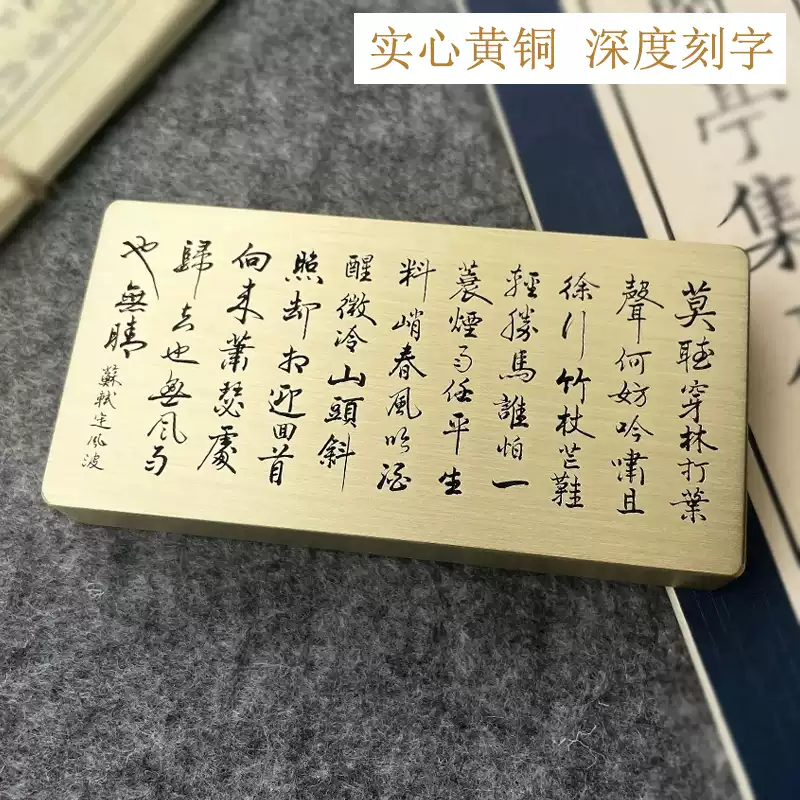 实心黄铜 深度刻字
莫聴穿林打葉
聲何妨吟嘯且
徐行竹杖芒鞋
輕勝馬誰怕一
蓑煙雨任平生
料峭春風吹酒
醒微冷山頭斜
照却相迎回首
向来蕭瑟處
歸去也無風雨
也無晴
蘇軾定風波
亭集